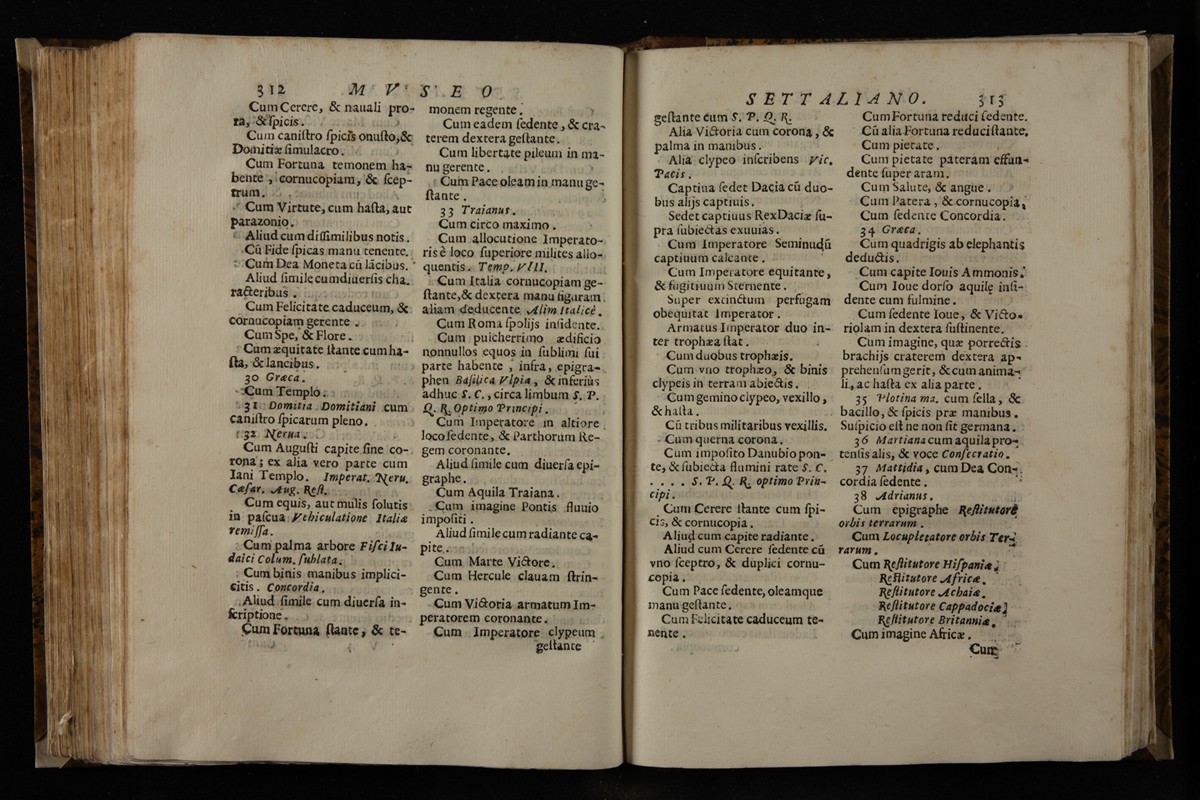 312 M V S E O
Cum Cerere, & nauali pro-
ra, & ſpicis.
Cum caniſtro ſpicis onuſto, &
Domitiæ ſimulacro.
Cum Fortuna temonem ha-
bente, cornucopiam, & ſcep-
trum.
Cum Virtute, cum haſta, aut
parazonio.
Aliud cum diſſimilibus notis.
Cū Fide ſpicas manu tenente.
Cum Dea Moneta cū lācibus.
Aliud ſimile cumdiuerſis cha.
racteribus.
Cum Felicitate caduceum, &
cornucopiam gerente.
Cum Spe, & Flore.
Cum æquitate ſtante cum ha-
ſta, & lancibus.
30 Græca.
Cum Templo.
31 Domitia Domitiani cum
caniſtro ſpicarum pleno.
32 Nerua.
Cum Auguſti capite ſine co-
rona; ex alia vero parte cum
Iani Templo. Imperat. Neru.
Cæſar. Aug. Reſt.
Cum equis, aut mulis ſolutis
in paſcua Vehiculatione Italiæ
remiſſa.
Cum palma arbore Fiſci Iu-
daici Colum. ſublata.
Cum binis manibus implici-
citis. Concordia.
Aliud ſimile cum diuerſa in-
ſcriptione.
Cum Fortuna ſtante, & te-
monem regente.
Cum eadem ſedente, & cra-
terem dextera geſtante.
Cum libertate pileum in ma-
nu gerente.
Cum Pace oleam in manu ge-
ſtante.
33 Traianus.
Cum circo maximo.
Cum allocutione Imperato-
ris è loco ſuperiore milites allo-
quentis. Temp. VIII.
Cum Italia cornucopiam ge-
ſtante, & dextera manu figuram
aliam deducente Alim Italicè.
Cum Roma ſpolijs inſidente.
Cum pulcherrimo ædificio
nonnullos equos in ſublimi ſui
parte habente, infra, epigra-
phen Baſilica Vlpia, & inferiùs
adhuc S. C., circa limbum S. P.
Q. R. Optimo Principi.
Cum Imperatore in altiore
loco ſedente, & Parthorum Re-
gem coronante.
Aliud ſimile cum diuerſa epi-
graphe.
Cum Aquila Traiana.
Cum imagine Pontis fluuio
impoſiti.
Aliud ſimile cum radiante ca-
pite.
Cum Marte Victore.
Cum Hercule clauam ſtrin-
gente.
Cum Victoria armatum Im-
peratorem coronante.
Cum Imperatore clypeum
geſtante
S E T T A L I A N O. 313
geſtante cum S. P. Q. R.
Alia Victoria cum corona, &
palma in manibus.
Alia clypeo inſcribens Vic.
Pacis.
Captiua ſedet Dacia cū duo-
bus alijs captiuis.
Sedet captiuus Rex Daciæ ſu-
pra ſubiectas exuuias.
Cum Imperatore Seminudū
captiuum calcante.
Cum Imperatore equitante,
& fugitiuum Sternente.
Super extinctum perfugam
obequitat Imperator.
Armatus Imperator duo in-
ter trophæa ſtat.
Cum duobus trophæis.
Cum vno trophæo, & binis
clypeis in terram abiectis.
Cum gemino clypeo, vexillo,
& haſta.
Cū tribus militaribus vexillis.
Cum querna corona.
Cum impoſito Danubio pon-
te, & ſubiecta flumini rate S. C.
. . . . S. P. Q. R. optimo Prin-
cipi.
Cum Cerere ſtante cum ſpi-
cis, & cornucopia.
Aliud cum capite radiante.
Aliud cum Cerere ſedente cū
vno ſceptro, & duplici cornu-
copia.
Cum Pace ſedente, oleamque
manu geſtante.
Cum Felicitate caduceum te-
nente.
Cum Fortuna reduci ſedente.
Cū alia Fortuna reduci ſtante.
Cum pietate.
Cum pietate pateram effun-
dente ſuper aram.
Cum Salute, & angue.
Cum Patera, & cornucopia;
Cum ſedente Concordia.
34 Græca.
Cum quadrigis ab elephantis
deductis.
Cum capite Iouis Ammonis.
Cum Ioue dorſo aquilę inſi-
dente cum fulmine.
Cum ſedente Ioue, & Victo-
riolam in dextera ſuſtinente.
Cum imagine, quæ porrectis
brachijs craterem dextera ap-
prehenſum gerit, & cum anima-
li, ac haſta ex alia parte.
35 Plotina ma. cum ſella, &
bacillo, & ſpicis præ manibus.
Suſpicio eſt ne non ſit germana.
36 Martiana cum aquila pro-
tenſis alis, & voce Conſecratio.
37 Mattidia, cum Dea Con-
cordia ſedente.
38 Adrianus.
Cum epigraphe Reſtitutore
orbis terrarum.
Cum Locupletatore orbis Ter-
rarum.
Cum Reſtitutore Hiſpaniæ.
Reſtitutore Africæ.
Reſtitutore Achaiæ.
Reſtitutore Cappadociæ
Reſtitutore Britanniæ.
Cum imagine Africæ.
Cum